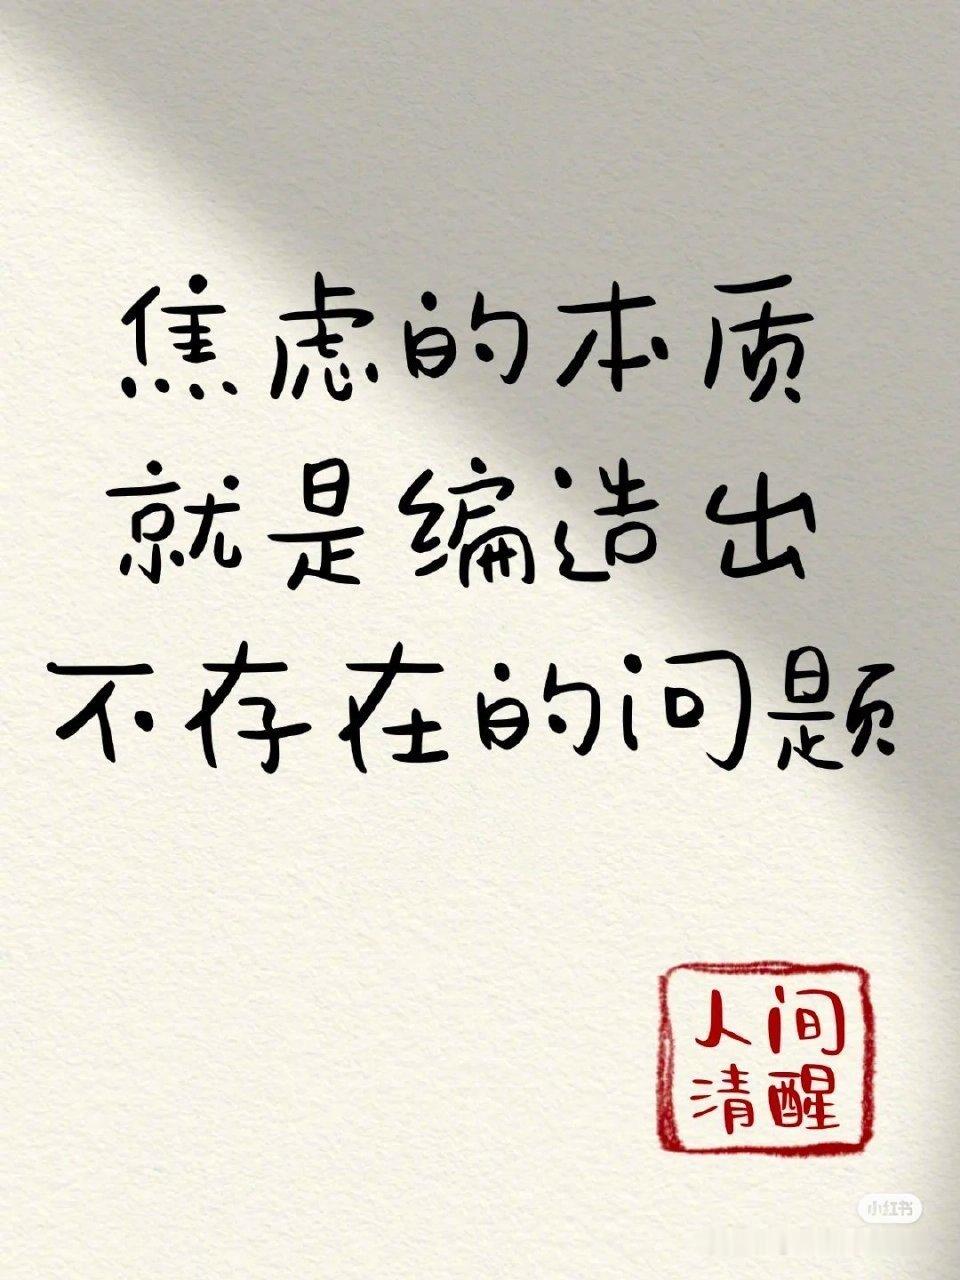 焦虑的本质
就是编造出
不存在的问题
人间
清醒
小红书